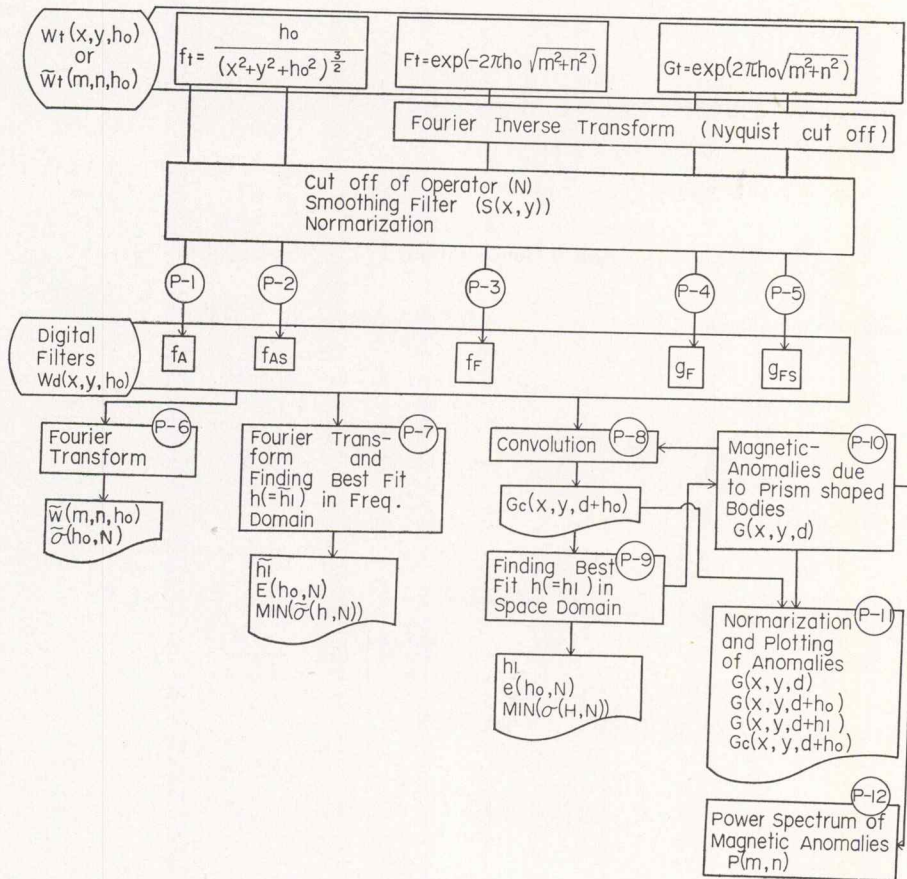 wt(x,y,ho)
or
w̃t(m,n,ho)
ft= ho / (x²+y²+ho²)^3/2
Ft=exp(-2πho √m²+n²)
Gt=exp(2πho√m²+n²)
Fourier Inverse Transform (Nyquist cut off)
Cut off of Operator (N)
Smoothing Filter (S(x,y))
Normarization
P-1
P-2
P-3
P-4
P-5
Digital
Filters
Wd(x,y,ho)
fA
fAS
fF
gF
gFS
P-6
Fourier
Transform
w̃(m,n,ho)
σ̃(ho,N)
P-7
Fourier Trans-
form and
Finding Best Fit
h(=h̃1) in Freq.
Domain
h̃1
E(ho,N)
MIN(σ̃(h,N))
P-8
Convolution
Gc(x,y,d+ho)
P-9
Finding Best
Fit h(=h1) in
Space Domain
h1
e(ho,N)
MIN(σ(H,N))
P-10
Magnetic-
Anomalies due
to Prism shaped
Bodies
G(x,y,d)
P-11
Normarization
and Plotting
of Anomalies
G(x,y,d)
G(x,y,d+ho)
G(x,y,d+h1)
Gc(x,y,d+ho)
P-12
Power Spectrum of
Magnetic Anomalies
P(m,n)